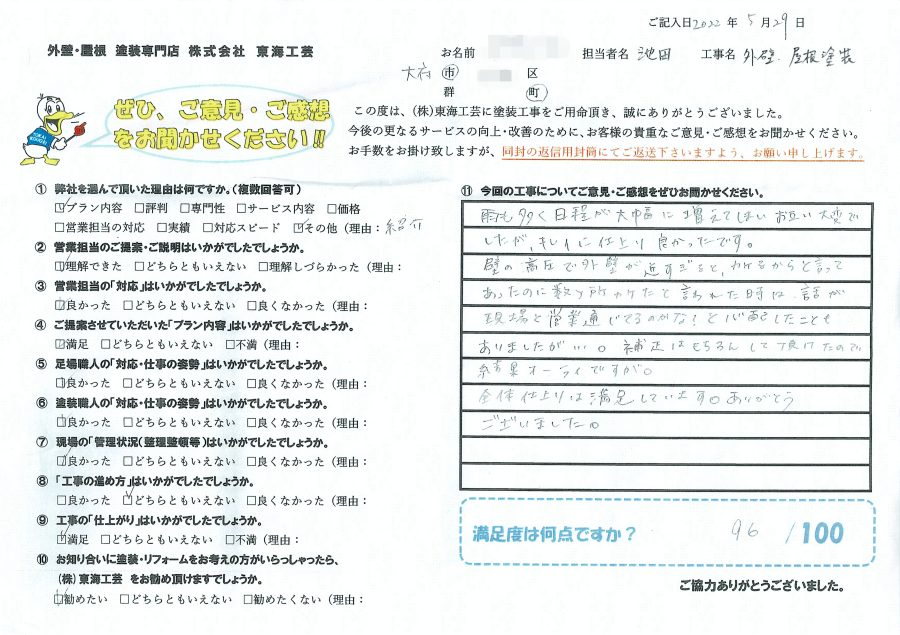 ご記入日2022年 5月29日
外壁・屋根 塗装専門店 株式会社 東海工芸
お名前 担当者名 池田 工事名 外壁・屋根塗装
大府 市 区
群 町
ぜひ、ご意見・ご感想
をお聞かせください!!
この度は、(株)東海工芸に塗装工事をご用命頂き、誠にありがとうございました。
今後の更なるサービスの向上・改善のために、お客様の貴重なご意見・ご感想をお聞かせください。
お手数をお掛け致しますが、同封の返信用封筒にてご返送下さいますよう、お願い申し上げます。
① 弊社を選んで頂いた理由は何ですか。(複数回答可)
☑プラン内容 □評判 □専門性 □サービス内容 □価格
□営業担当の対応 □実績 □対応スピード ☑その他(理由:紹介
② 営業担当のご提案・ご説明はいかがでしたでしょうか。
☑理解できた □どちらともいえない □理解しづらかった(理由:
③ 営業担当の「対応」はいかがでしたでしょうか。
☑良かった □どちらともいえない □良くなかった(理由:
④ ご提案させていただいた「プラン内容」はいかがでしたでしょうか。
☑満足 □どちらともいえない □不満(理由:
⑤ 足場職人の「対応・仕事の姿勢」はいかがでしたでしょうか。
☑良かった □どちらともいえない □良くなかった(理由:
⑥ 塗装職人の「対応・仕事の姿勢」はいかがでしたでしょうか。
☑良かった □どちらともいえない □良くなかった(理由:
⑦ 現場の「管理状況(整理整頓等)はいかがでしたでしょうか。
☑良かった □どちらともいえない □良くなかった(理由:
⑧ 「工事の進め方」はいかがでしたでしょうか。
□良かった ☑どちらともいえない □良くなかった(理由:
⑨ 工事の「仕上がり」はいかがでしたでしょうか。
☑満足 □どちらともいえない □不満(理由:
⑩ お知り合いに塗装・リフォームをお考えの方がいらっしゃったら、
(株)東海工芸 をお勧め頂けますでしょうか。
☑勧めたい □どちらともいえない □勧めたくない(理由:
⑪ 今回の工事についてご意見・ご感想をぜひお聞かせください。
雨も多く日程が大幅に増えてしまいお互い大変で
したが、キレイに仕上り良かったです。
壁の高圧で外壁が近すぎると、カケるからと言って
あったのに数ヶ所カケたと言われた時は、話が
現場と営業通じてるのかな?と心配したことも
ありましたが…。補正はもちろんして頂けたので
結果オーライですが。
全体仕上りは満足しています。ありがとう
ございました。
満足度は何点ですか? 96/100
ご協力ありがとうございました。